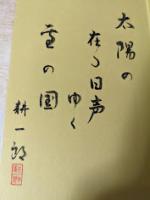 太陽の
在る日声
ゆく
雪の国
耕一郎